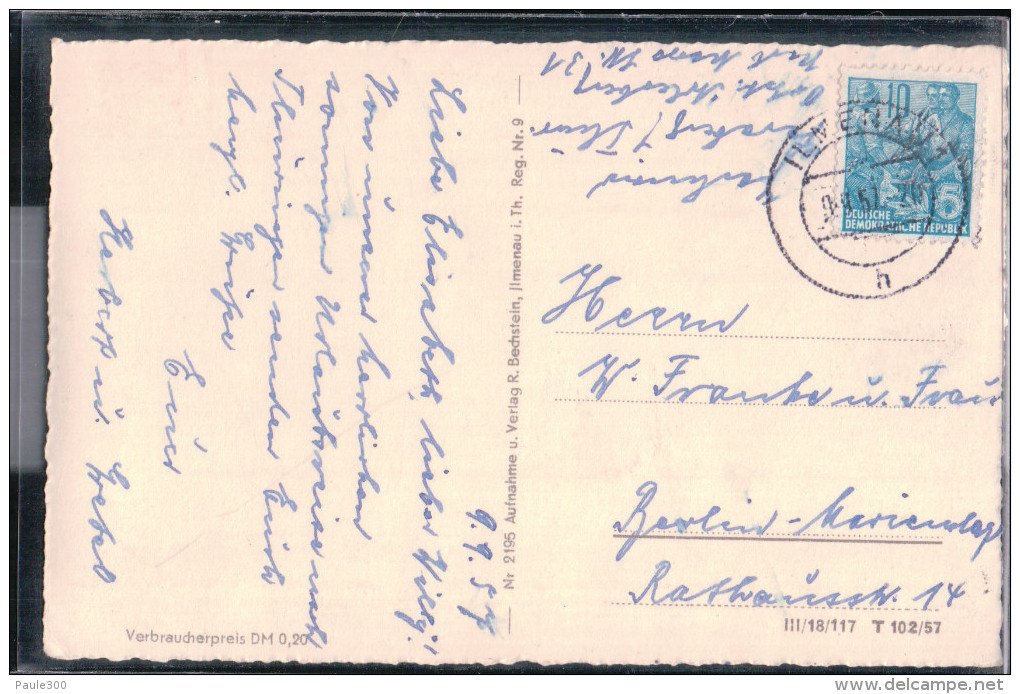 9.9.57
Liebe Elisabeth, lieber Willy!
Von unserer herrlichen
sonnigen Urlaubsreise nach
Thüringen senden Euch
herzl. Grüße
Eure
Herbert u. Gretel
Nr 2195 Aufnahme u. Verlag R. Bechstein, Jlmenau i. Th. Reg. Nr. 9
Verbraucherpreis DM 0,20
31
10
5
DEUTSCHE
DEMOKRATISCHE REPUBLIK
ILMENAU
h
Herrn
W. Franke u. Frau
Berlin-Mariendorf
Rathausstr. 14
III/18/117 T 102/57
Paule300
www.delcampe.net